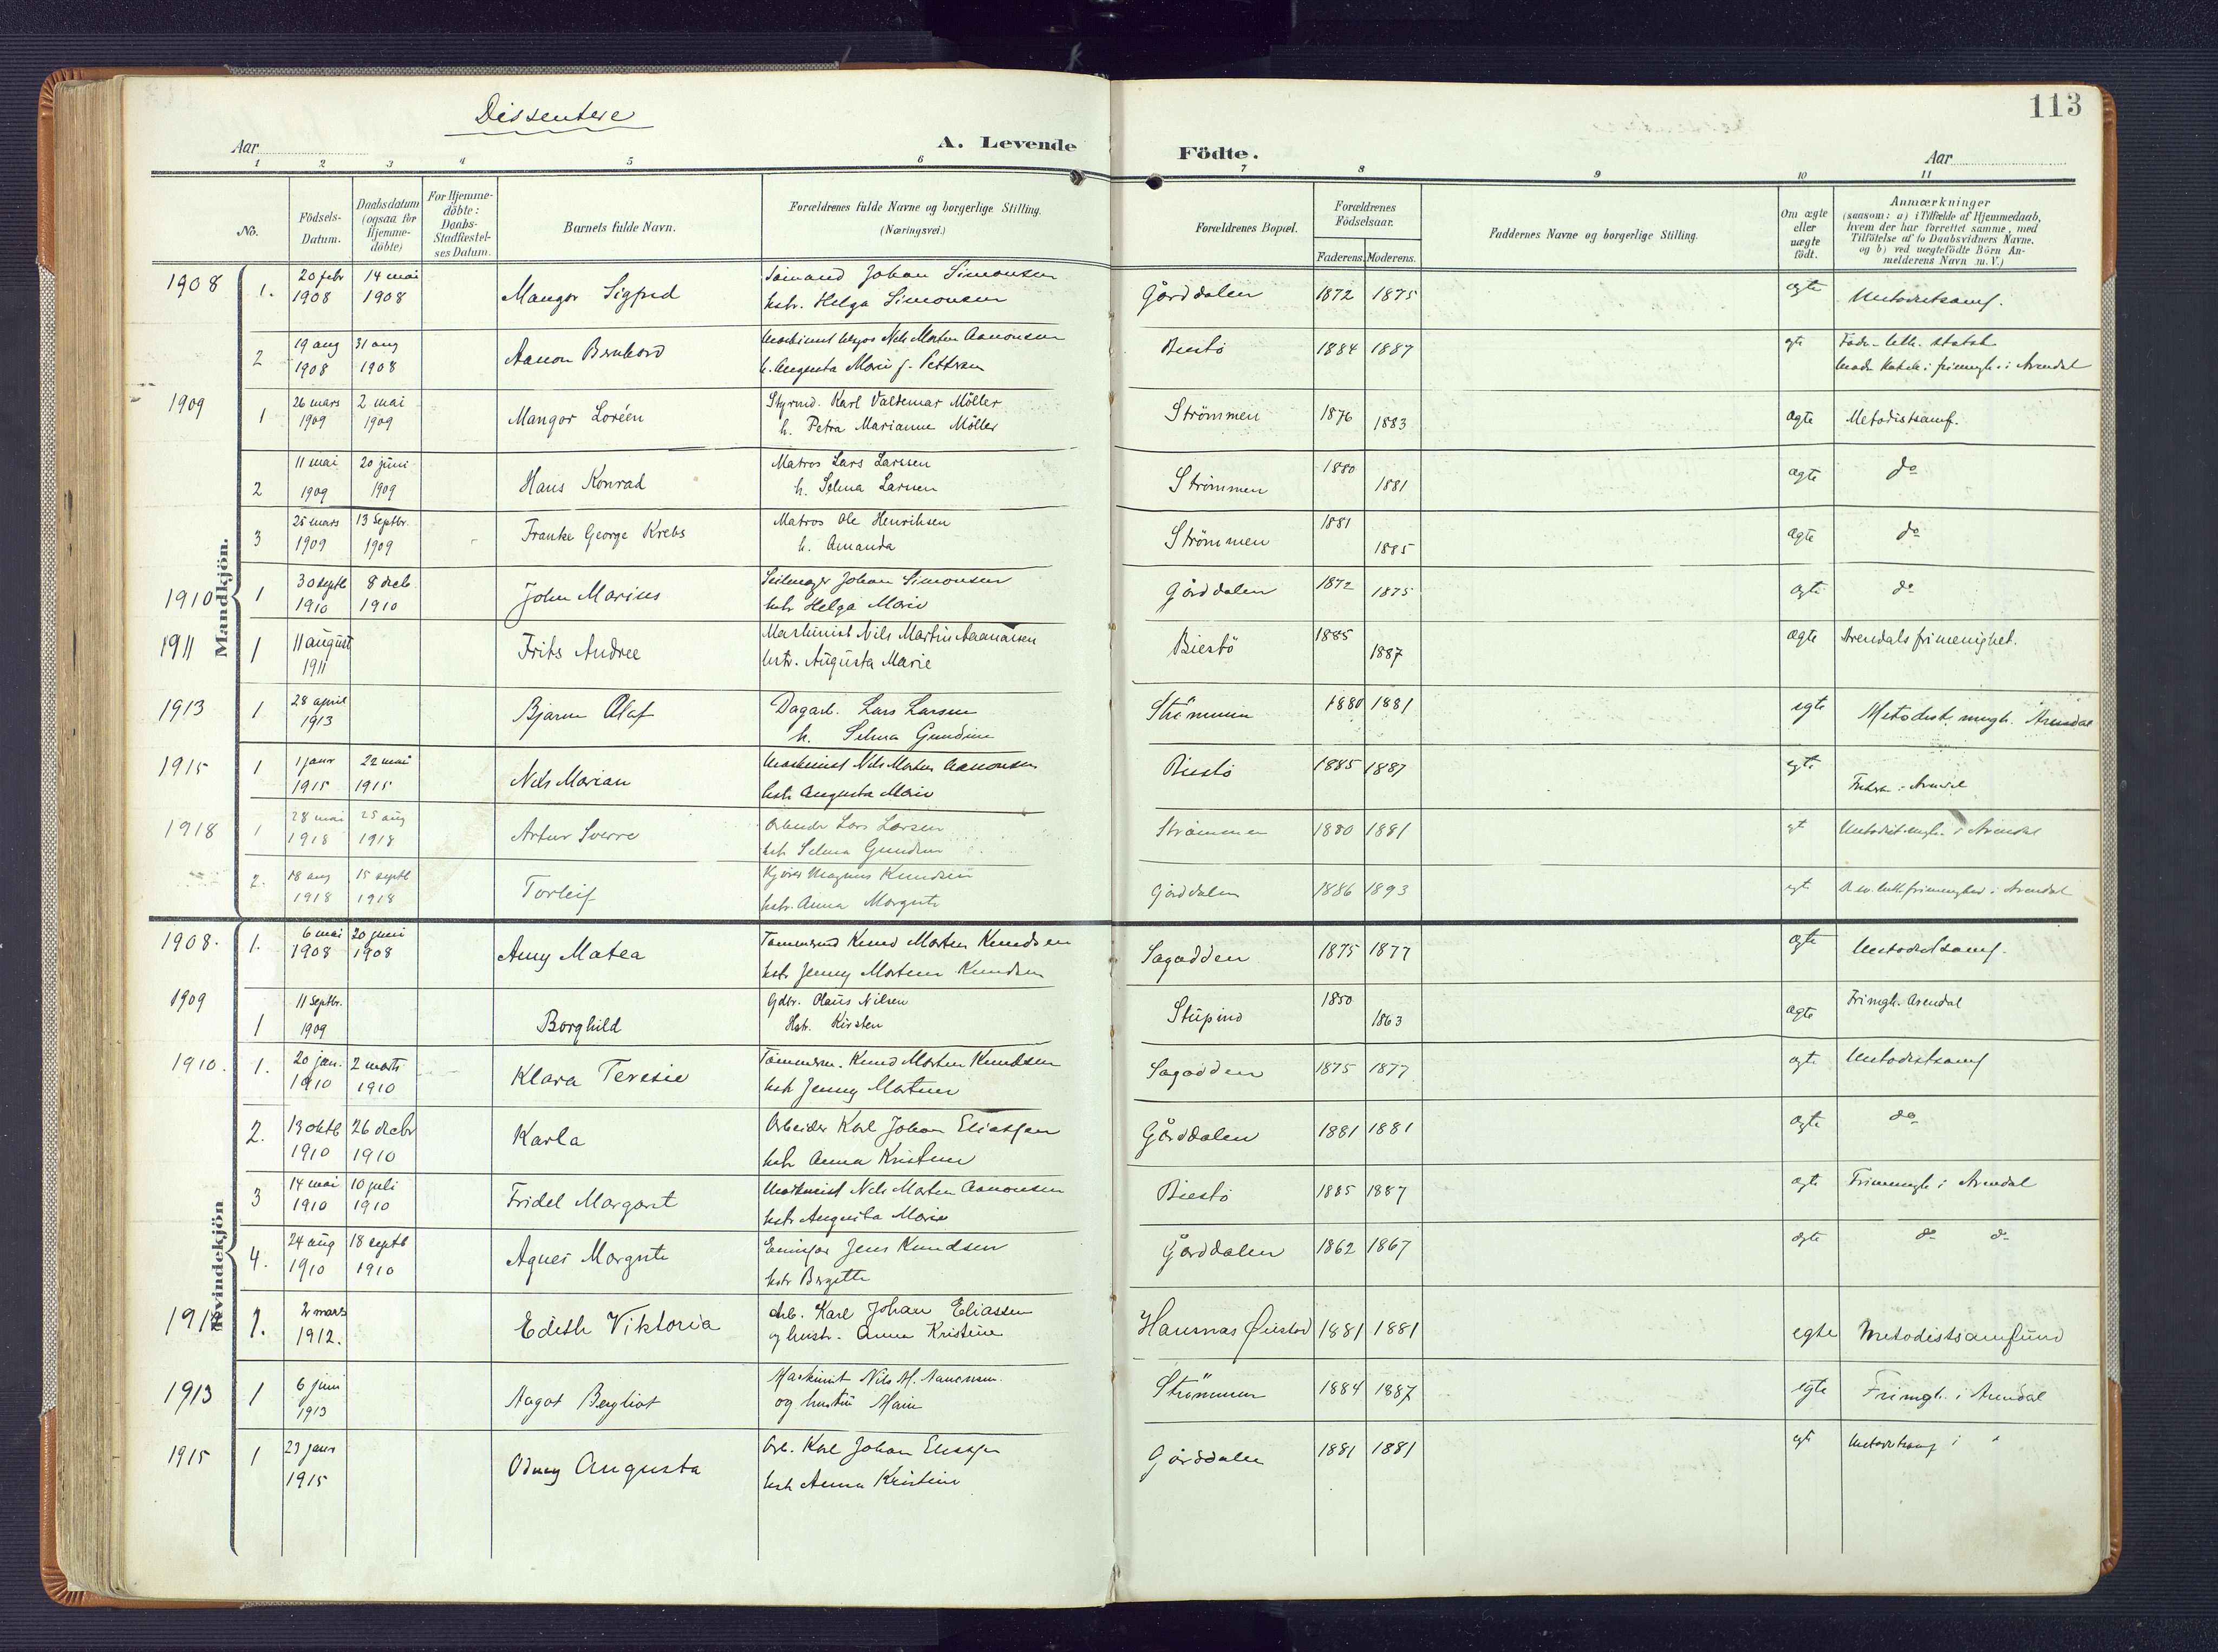 113
Dissentere
Aar
A. Levende Födte.
Aar
1 2 3 4 5 6 7 8 9 10 11
No.
Födsels-Datum.
Daabsdatum (ogsaa for Hjemme-döbte)
For Hjemme-döbte: Daabs-Stadfæstel-ses Datum.
Barnets fulde Navn.
Forældrenes fulde Navne og borgerlige Stilling. (Næringsvei.)
Forældrenes Bopæl.
Forældrenes Födselsaar.
Faderens. Moderens.
Faddernes Navne og borgerlige Stilling.
Om ægte eller uægte födt.
Anmærkninger
(saasom: a) i Tilfælde af Hjemmedaab,
hvem der har forrettet samme, med
Tilföielse af to Daabsvidners Navne.
og b) ved uægtefödte Börn An-
melderens Navn m. V.)
Mandkjön.
1908 1. 20 febr 1908 14 mai 1908 Mangor Sigfred Johan Simonsen
hstr. Helga Simonsen Gårddalen 1872 1875 ægte Metodistsamf.
2 19 aug 1908 31 aug 1908 Aanon Nils Morten Aanonsen
h. Augusta Marie f. Biestö 1884 1887 luth. statsk.
i frimngh. i Arendal
1909 1 26 mars 1909 2 mai 1909 Mangor Loréen Styrmd. Karl Valdemar Möller
h. Petra Marianne Möller Strömmen 1876 1883 ægte Metodistsamf.
2 11 mai 1909 20 juni 1909 Hans Konrad Matros Lars Larssen
h. Selma Larssen Strömmen 1880 1881 ægte do
3 25 mars 1909 13 Septbr. 1909 Franke George Krebs Matros Ole Henriksen
h. Amanda Strömmen 1881 1885 ægte do
1910 1 30 septb 1910 8 decb 1910 John Marius Seilmager Johan Simonsen
hstr Helga Marie Gårddalen 1872 1875 ægte do
1911 1 11 august 1911 Frits Andree Maskinist Nils Martin Aanonsen
hstr. Augusta Marie Biestö 1885 1887 ægte Arendals frimenighet.
1913 1 28 april 1913 Bjarne Olaf Dagarb. Lars Larsen
h. Selma Gundine Strömmen 1880 1881 egte Metodist mngh. Arendal
1915 1 1 janr 1915 22 mai 1915 Nils Marian Maskinist Nils Morten Aanonsen
hstr Augusta Marie Biestö 1885 1887 egte
1918 1 28 mai 1918 25 aug 1918 Artur Sverre Arbeider Lars Larsen
hstr Selma Gundine Strömmen 1880 1881 Metodist mngh. i Arendal
2. 18 aug 1918 15 septb 1918 Torleif Magnus Knudsen
hstr. Anna Margrete Gårddalen 1886 1893 luth. frimenighed i Arendal
Kvindekjön
1908. 1. 6 mai 1908 20 juni 1908 Amy Matea Tömmermd Knud Morten Knudsen
hstr Jenny Martine Knudsen Sagodden 1875 1877 ægte Metodistsamf.
1909 1 11 Septbr. 1909 Borghild Gdbr. Olaus Nilsen
Hstr. Kirsten 1850 1863 ægte Frimgh. Arendal
1910. 1. 20 jan. 1910 2 mars 1910 Klara Teresie Tömmerm. Knud Morten Knudsen
hstr Jenny Martine Sagodden 1875 1877 ægte Metodistsamf
2. 13 oktb 1910 26 decbr 1910 Karla Arbeider Karl Johan Eliassen
hstr Anna Kristine Gårddalen 1881 1881 ægte do
3 14 mai 1910 10 juli 1910 Fridel Margaret Maskinist Nils Morten Aanonsen
hstr Augusta Marie Biestö 1885 1887 ægte Frimengh i Arendal
4. 24 aug 1910 18 septb 1910 Agnes Margrete Jens Knudsen
hstr Bergette Gårddalen 1862 1867 ægte do do
1912 1. 2 mars 1912. Edith Viktoria Arb. Karl Johan Eliassen
og hustr. Anna Kristine 1881 1881 egte Metodistsamfund
1913 1 6 juni 1913 Aagot Bergliot Maskinist Nils M. Aanonsen.
og hustru Marie Strömmen 1884 1887 egte Frimgh. i Arendal
1915 1 23 janr 1915 Odny Augusta Arb. Karl Johan Eliassen
hstr Anna Kristine Gårddalen 1881 1881 egte Metodistsamf i "